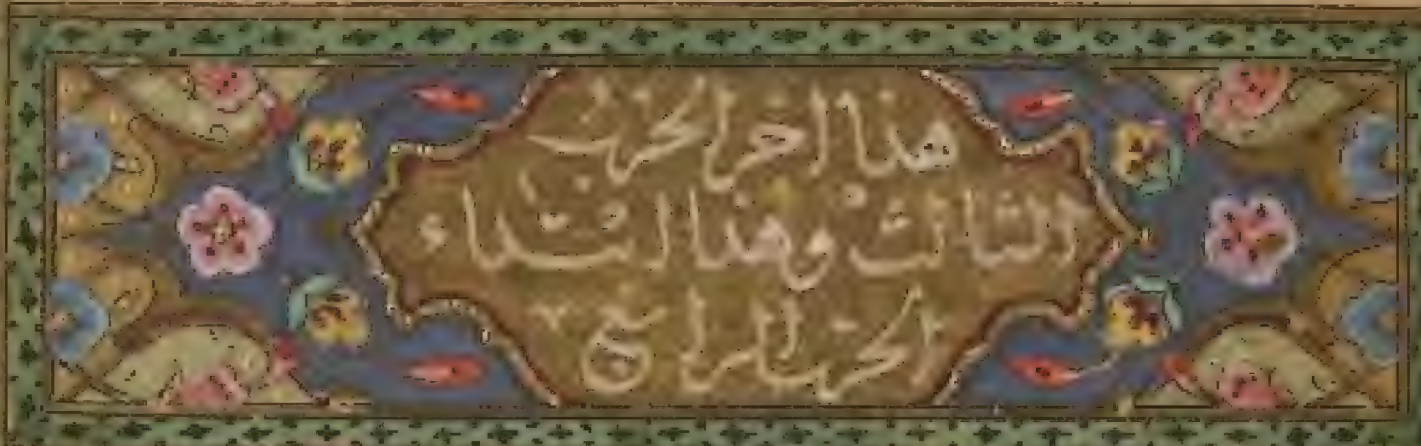 هذا اخر الحزب
الثالث وهذا ابتداء
الحزب الرابع